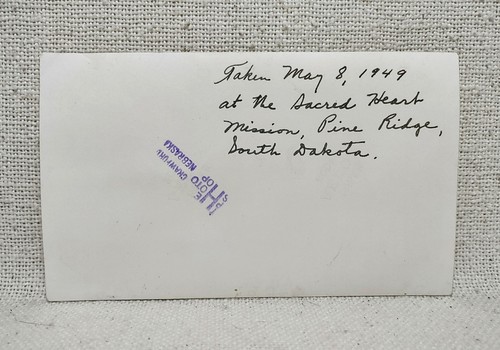 Taken May 8, 1949
at the Sacred Heart
Mission, Pine Ridge,
South Dakota.
NEBRASKA